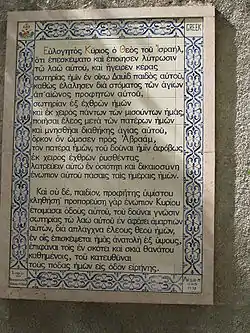 GREEK
Εὐλογητὸς Κύριος ὁ Θεὸς τοῦ Ἰσραήλ,
ὅτι ἐπεσκέψατο καὶ ἐποίησεν λύτρωσιν
τῷ λαῷ αὐτοῦ, καὶ ἤγειρεν κέρας
σωτηρίας ἡμῖν ἐν οἴκῳ Δαυὶδ παιδὸς αὐτοῦ,
καθὼς ἐλάλησεν διὰ στόματος τῶν ἁγίων
ἀπ' αἰῶνος προφητῶν αὐτοῦ,
σωτηρίαν ἐξ ἐχθρῶν ἡμῶν
καὶ ἐκ χειρὸς πάντων τῶν μισούντων ἡμᾶς,
ποιῆσαι ἔλεος μετὰ τῶν πατέρων ἡμῶν
καὶ μνησθῆναι διαθήκης ἁγίας αὐτοῦ,
ὅρκον ὃν ὤμοσεν πρὸς Ἀβραὰμ
τὸν πατέρα ἡμῶν, τοῦ δοῦναι ἡμῖν ἀφόβως
ἐκ χειρὸς ἐχθρῶν ῥυσθέντας
λατρεύειν αὐτῷ ἐν ὁσιότητι καὶ δικαιοσύνῃ
ἐνώπιον αὐτοῦ πάσαις ταῖς ἡμέραις ἡμῶν.
Καὶ σὺ δέ, παιδίον, προφήτης ὑψίστου
κληθήσῃ· προπορεύσῃ γὰρ ἐνώπιον Κυρίου
ἑτοιμάσαι ὁδοὺς αὐτοῦ, τοῦ δοῦναι γνῶσιν
σωτηρίας τῷ λαῷ αὐτοῦ ἐν ἀφέσει ἁμαρτιῶν
αὐτῶν, διὰ σπλάγχνα ἐλέους θεοῦ ἡμῶν,
ἐν οἷς ἐπισκέψεται ἡμᾶς ἀνατολὴ ἐξ ὕψους,
ἐπιφᾶναι τοῖς ἐν σκότει καὶ σκιᾷ θανάτου
καθημένοις, τοῦ κατευθῦναι
τοὺς πόδας ἡμῶν εἰς ὁδὸν εἰρήνης.